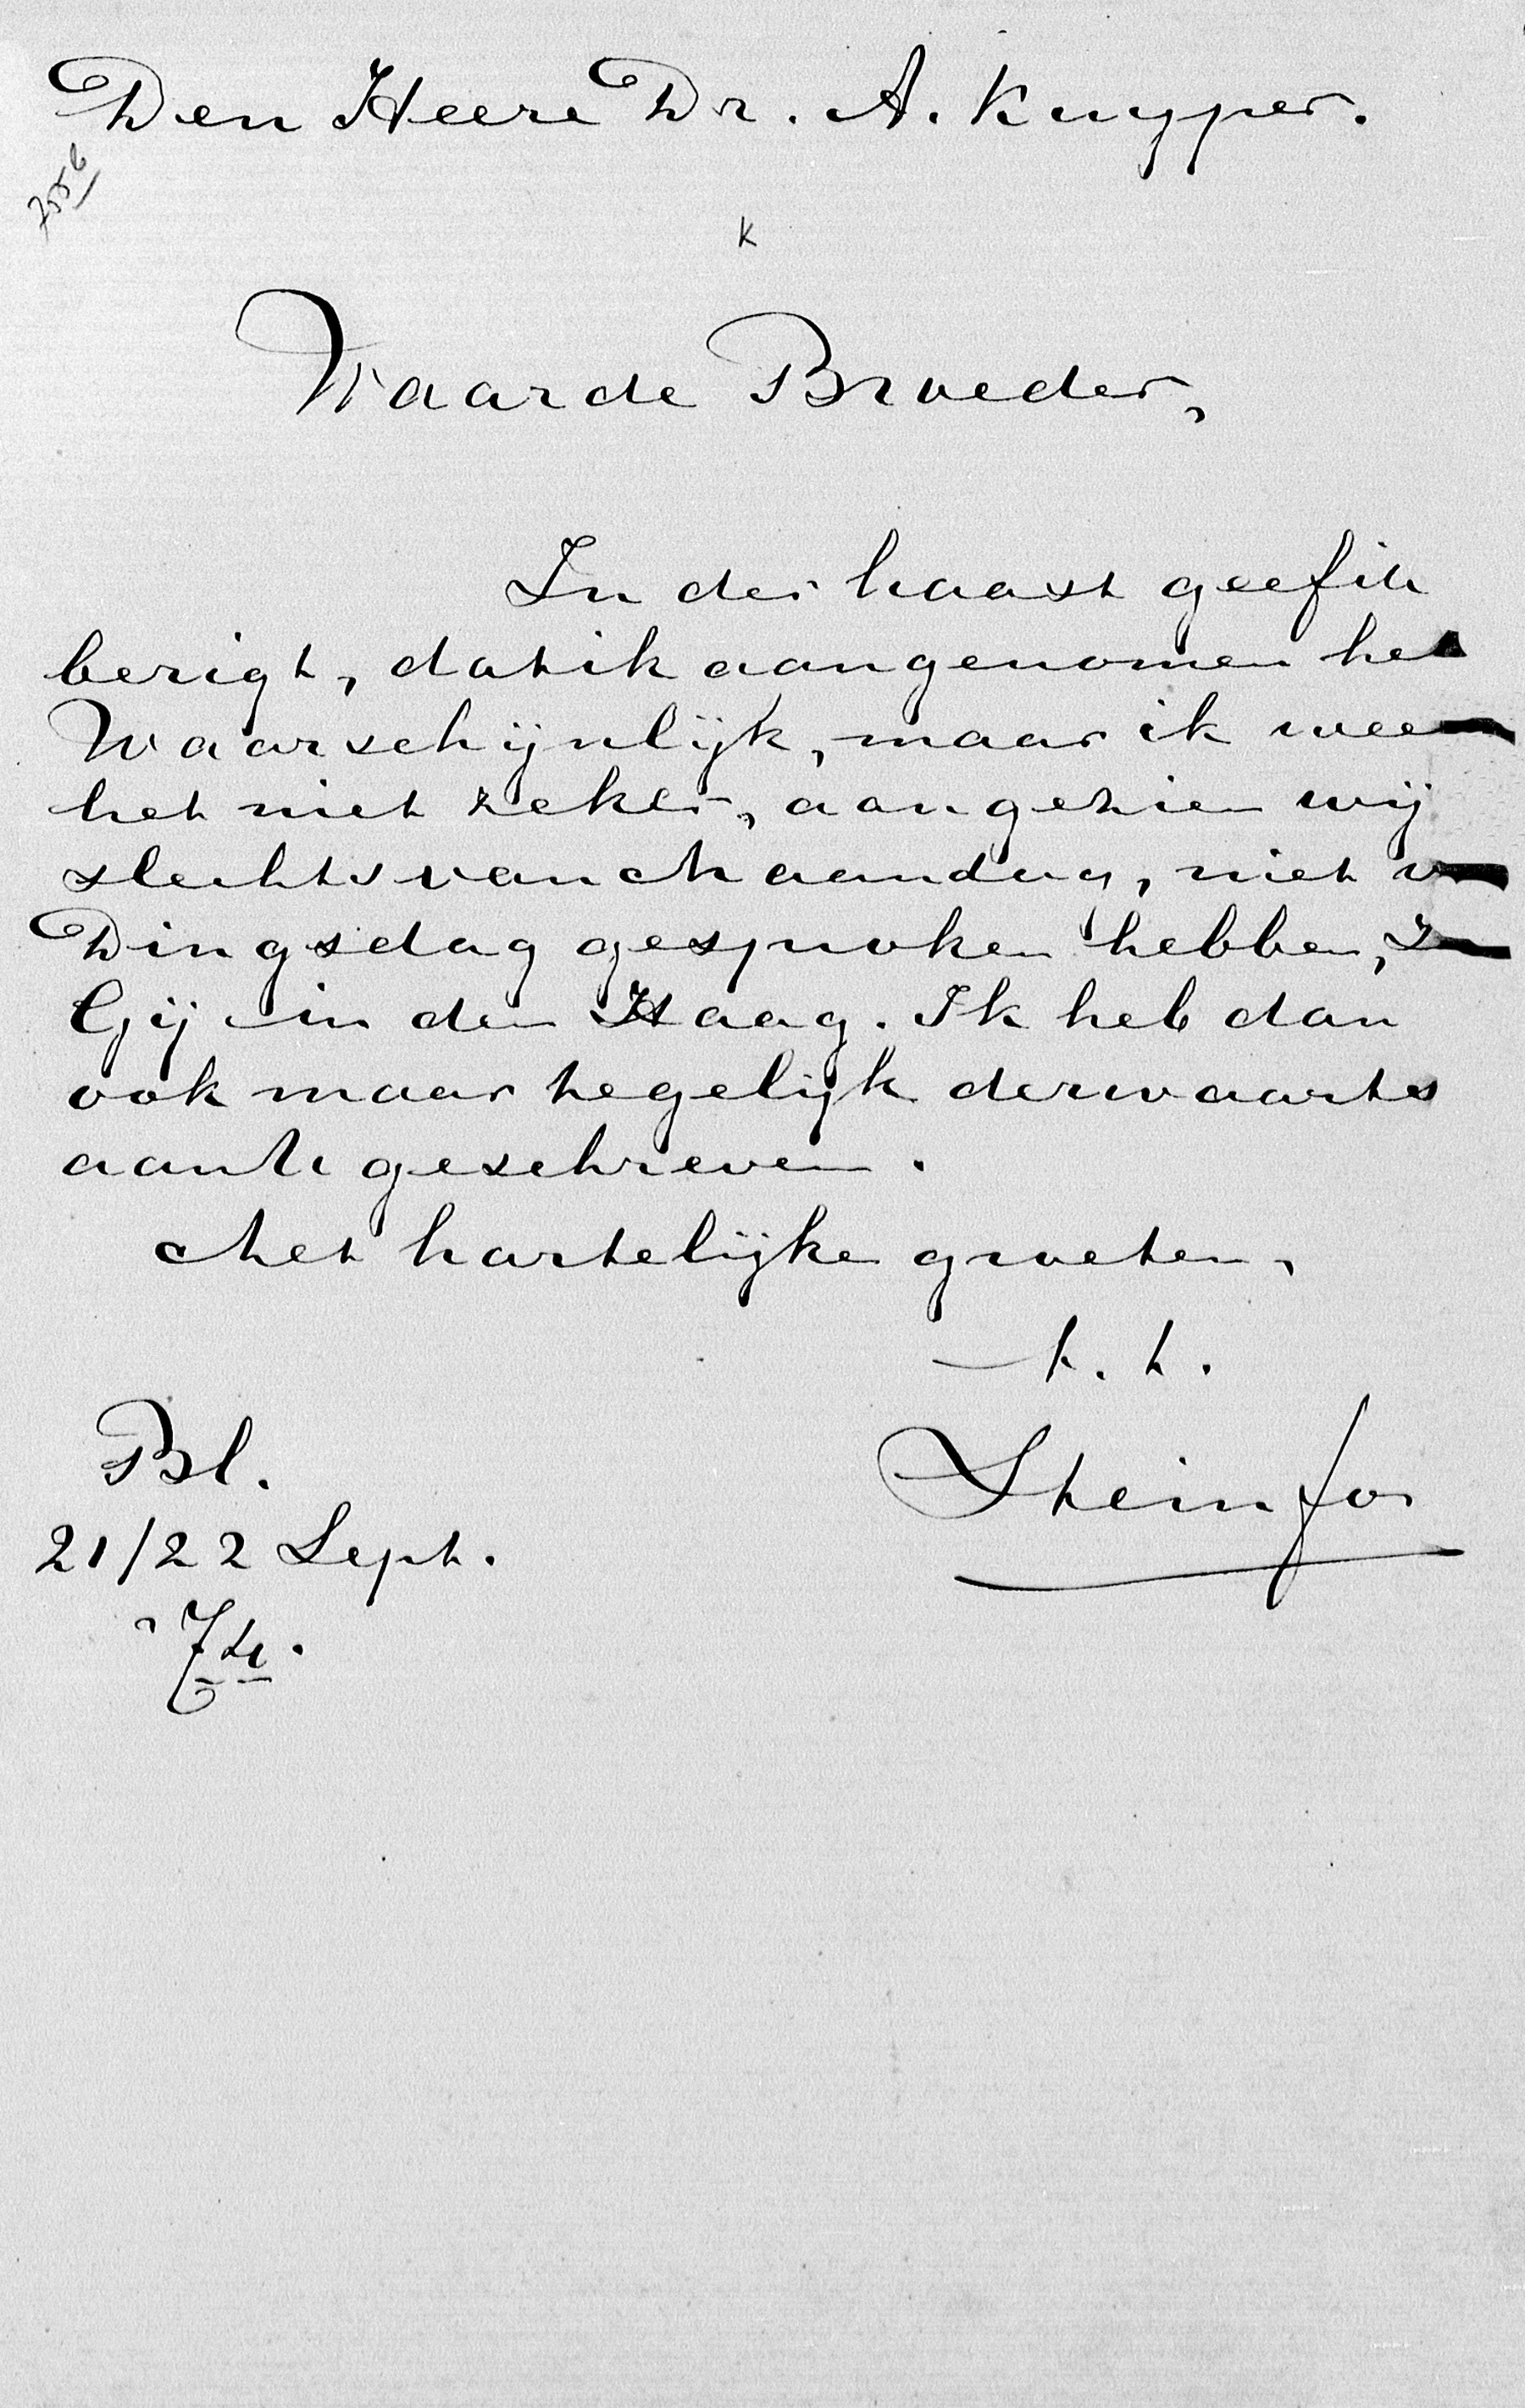 Den Heere Dr. A. Kuyper.
755b
K
Waarde Broeder,
In der haast geef ik
berigt, dat ik aangenomen heb
Waarschijnlijk, maar ik weet
het niet zeker, aangezien wij
slechts van Maandag, niet v
Dingsdag gesproken hebben,
Gij in den Haag. Ik heb dan
ook maar tegelijk derwaarts
aan U geschreven.
Met hartelijke groeten,
t. t.
Bl.
21/22 Sept.
'74.